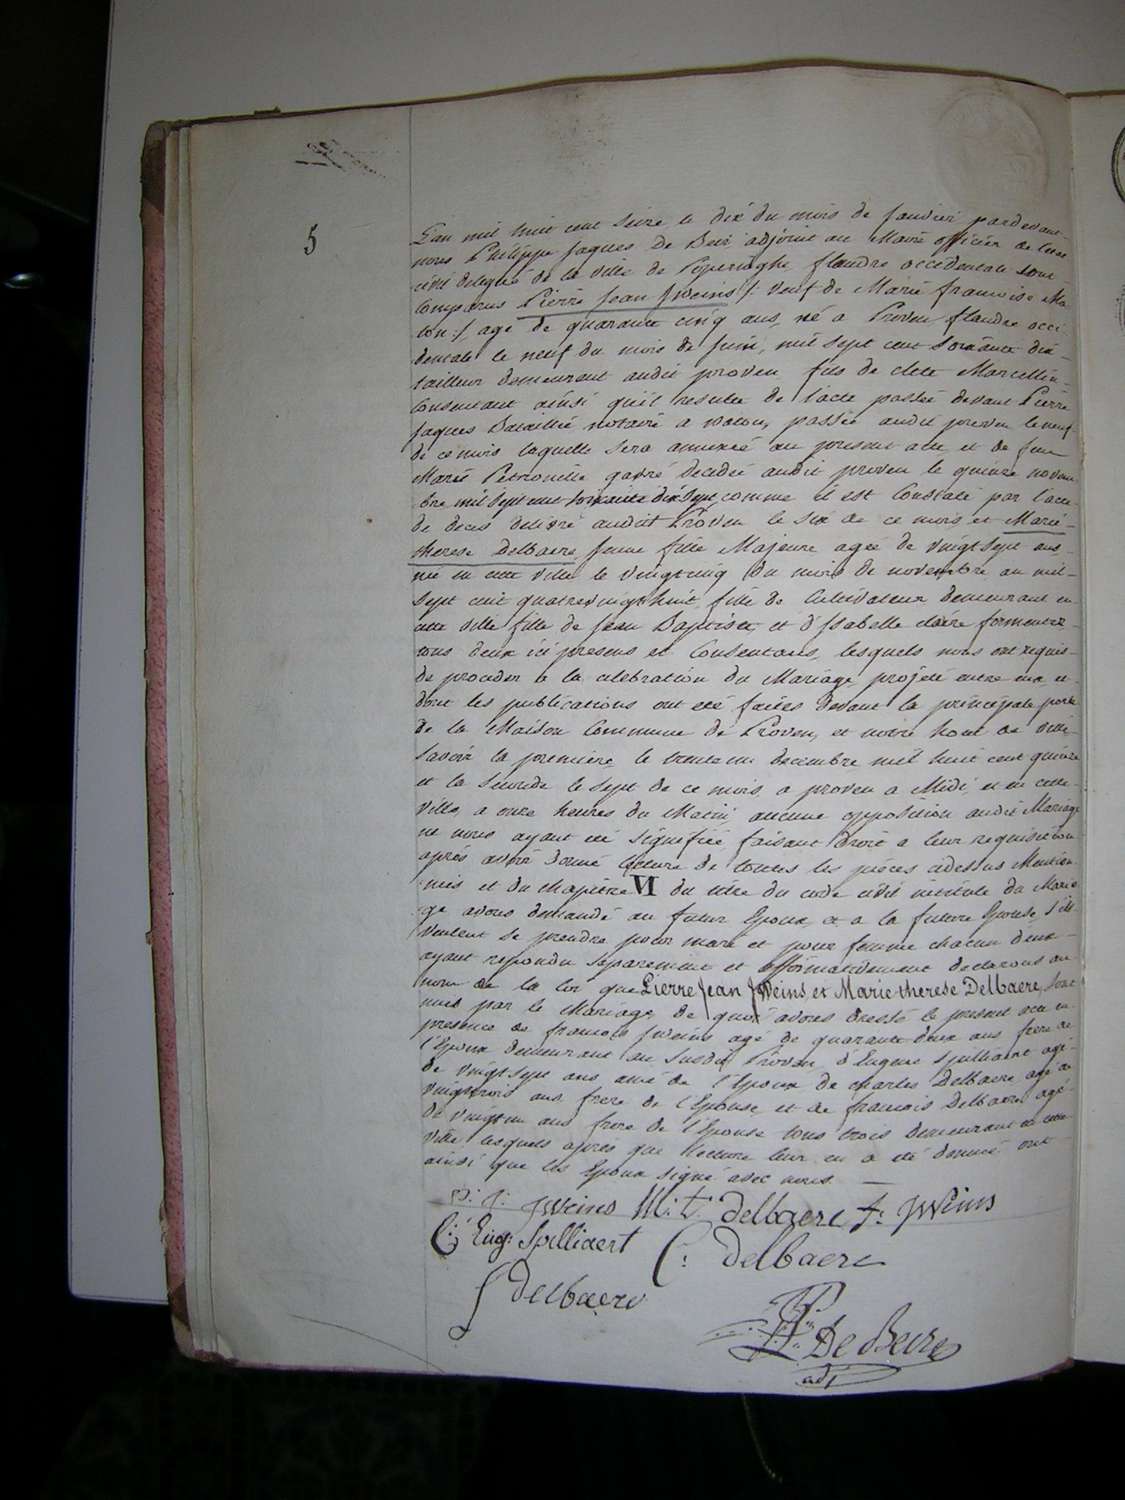 5
L'an mil huit cent seize le dix du mois de Janvier pardevant
nous Philippe Jaques De Beir adjoint au Maire officier de l'etat
civil delegué de la ville de Poperinghe, flandre occidentale sont
Comparus Pierre Jean Jweins /: veuf de Marie francoise Ma
ton :/ agé de quarante cinq ans, né a Proven flandre occi-
dentale le neuf du mois de Juin, mil sept cent soixante dix-
tailleur demeurant audit proven fils de Clete Marcellin-
Consentant ainsi qu'il resulte de l'acte passée devant Pierre
Jaques Bataillie notaire a watou, passée audit proven le neuf
de ce mois laquelle sera annexée au present acte et de feue
Marie Petronille decedée audit proven le quinze novem-
bre mil sept cent soixante dix sept comme il est Constaté par l'acte
de deces delivré audit Proven le six de ce mois et Marie-
therese Delbaere Jeune fille Majeure agée de vingt sept ans-
née en cette ville le vingtcinq du mois de novembre an mil-
sept cent quatrevingt huit, fille de Cultivateur demeurant en
cette ville fille de Jean Baptiste et d'Isabelle claire
tous deux ici presens et Consentans, lesquels nous ont requis-
de proceder a la celebration du Mariage projeté entre eux et-
dont les publications ont eté faites devant la principale porte
de la Maison Commune de Proven, et notre hotel de ville
savoir la premiere le trente un decembre mil huit cent quinze
et la seconde le sept de ce mois, a proven a Midi, et en cette-
ville, a onze heures du Matin aucune opposition audit Mariage
ne nous ayant eté signifiée faisant droit a leur requisition
après avoir donné lecture de toutes les pièces cidessus Mention-
nées et du chapitre VI du titre du code civil intitulé du Maria
ge avons demandé au futur Epoux, et a la future Epouse s'ils
veulent se prendre pour mari et pour femme chacun d'eux-
ayant repondu separement et affirmativement declarons au
nom de la loi que Pierre Jean Jweins, et Marie therese Delbaere, sont
unis par le Mariage, de quoi avons dressé le present acte en
presence de francois Jweins agé de quarante deux ans frere de
l'Epoux demeurant au susdit Proven, d'Eugene Spilliaert agé-
de vingt sept ans amé de l'Epoux de charles Delbaere agé de
vingt trois ans frere de l'Epouse et de francois Delbaere agé-
de vingt un ans frere de l'Epouse tous trois demeurant en cette
ville lesquels après que lecture leur en a eté donnée ont
ainsi que les Epoux signé avec nous. —
P: J: Jweins M: t: delbaere f: Jweins
C: Eug: Spilliaert C: delbaere
f delbaere
De Beire
adj